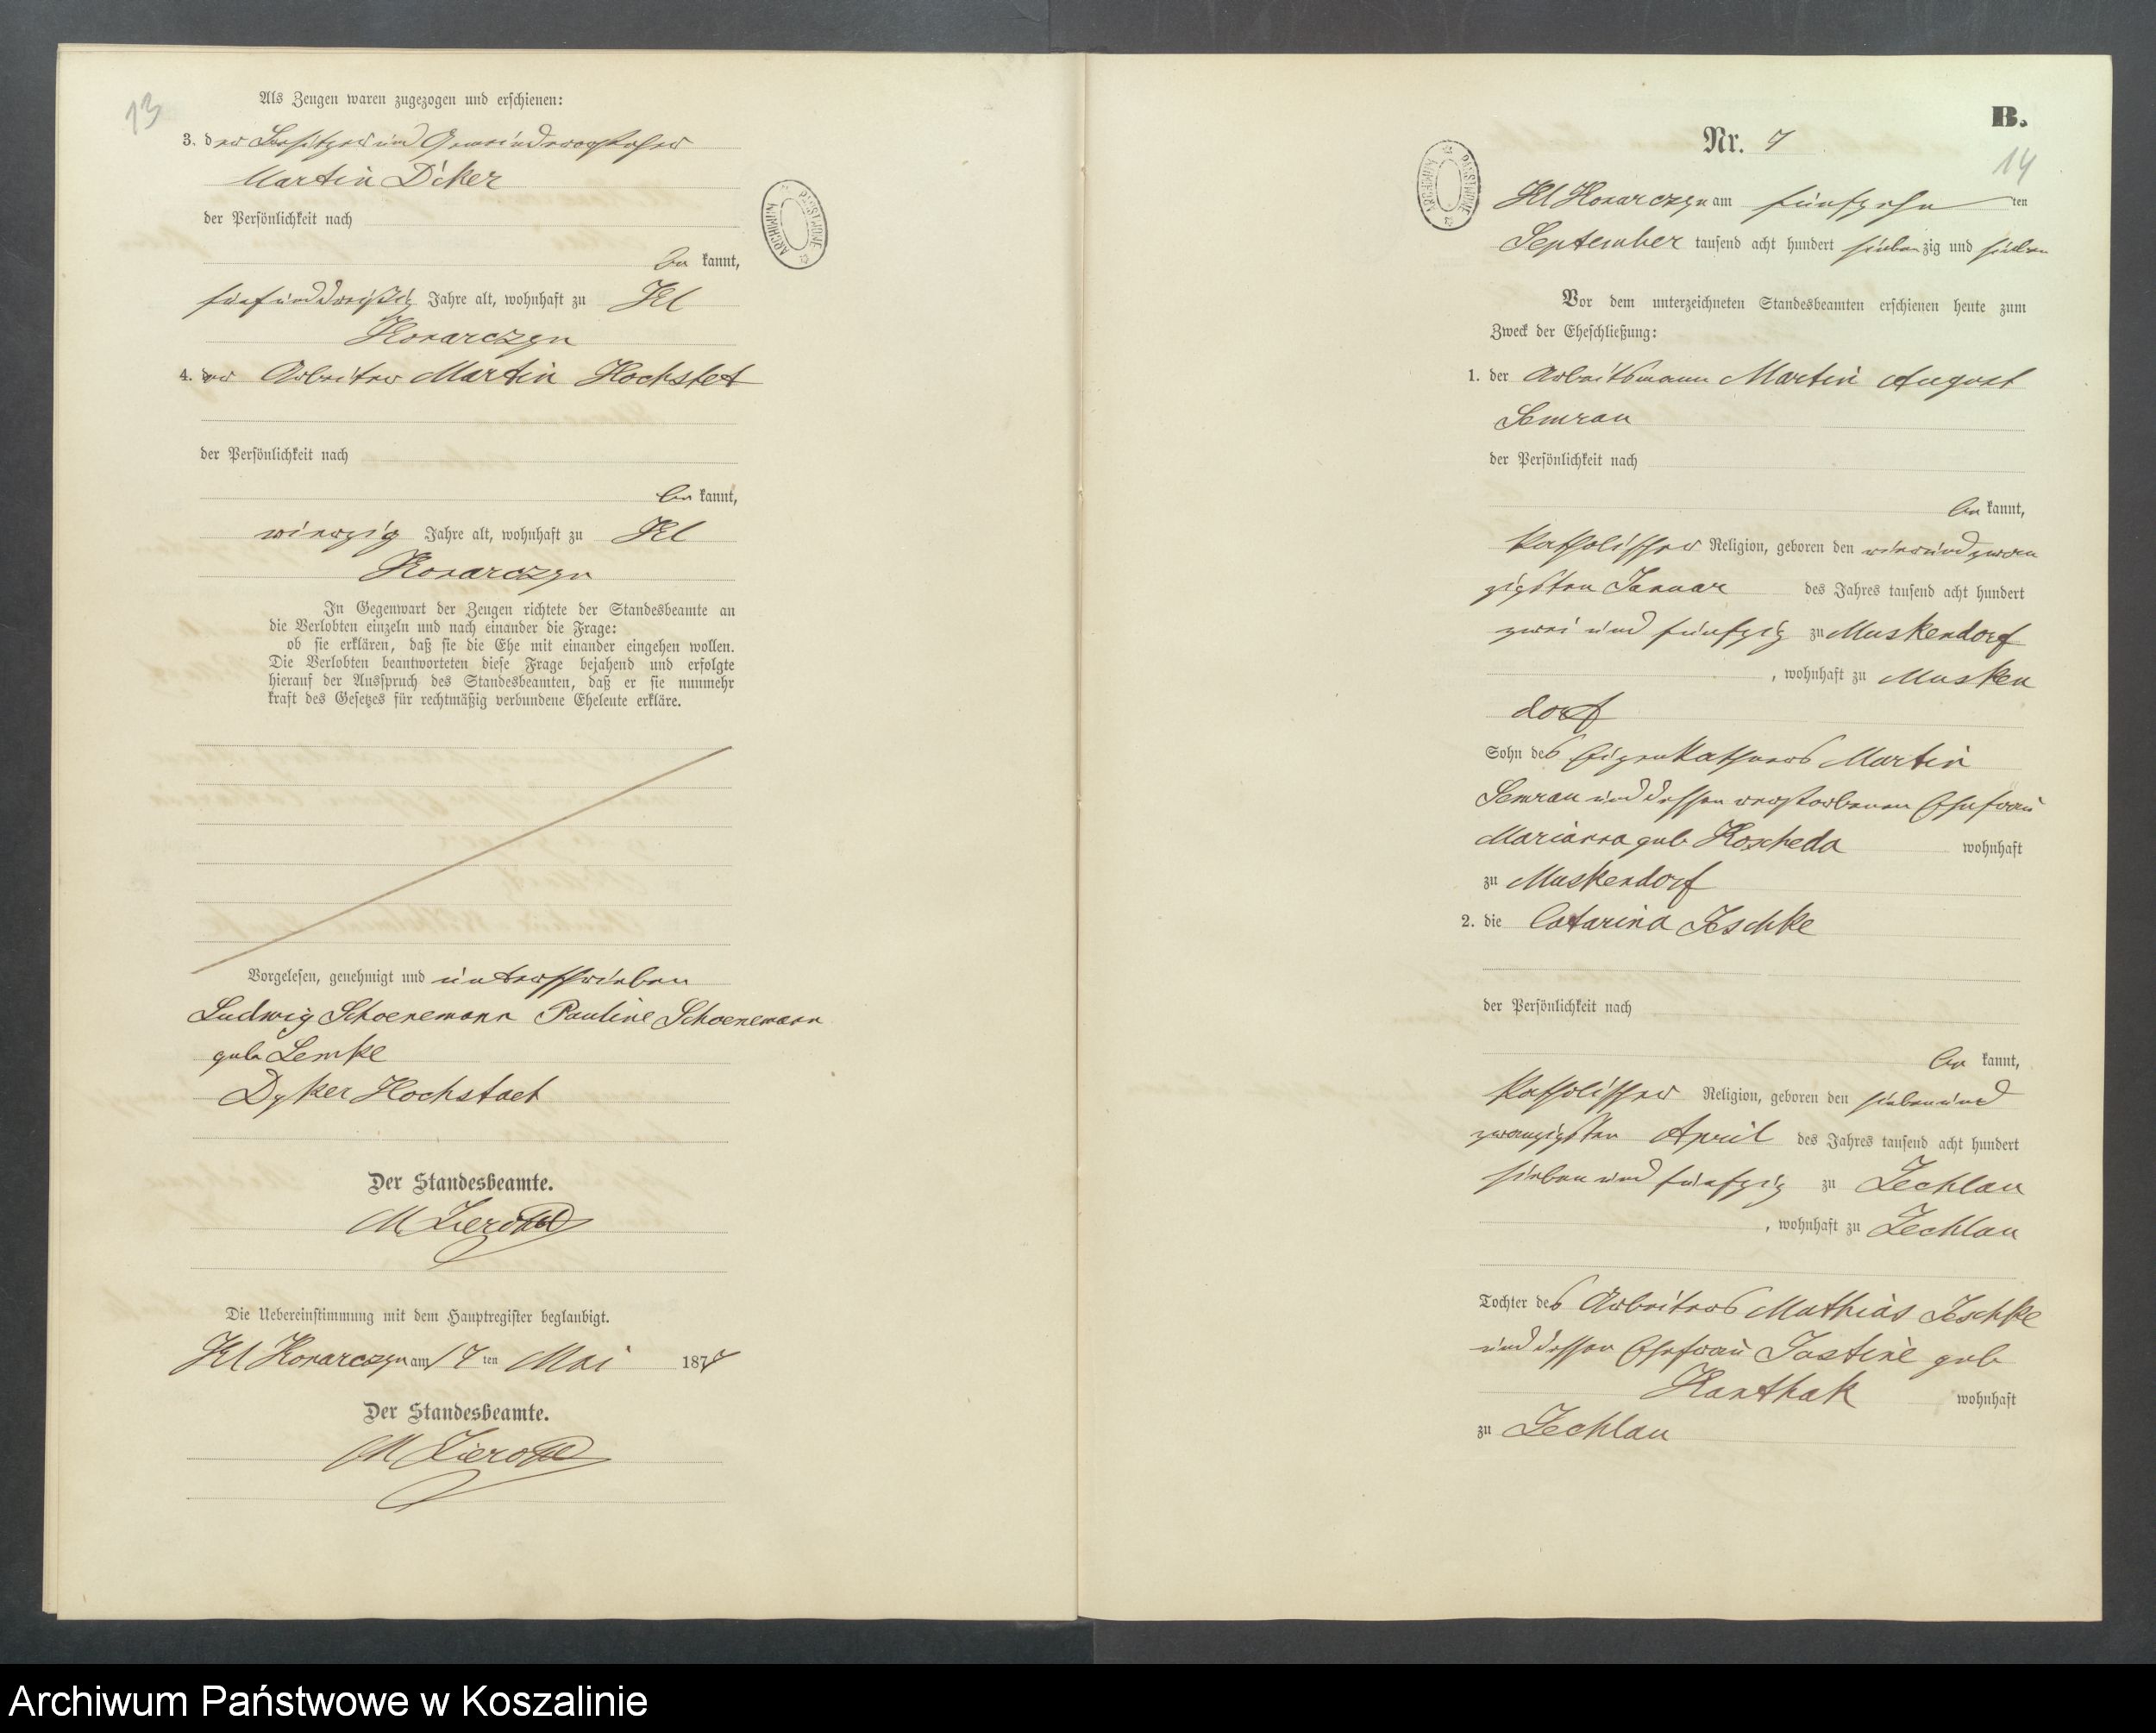 13
Als Zeugen waren zugezogen und erschienen:
3. der Besitzer und Gemeindevorsteher
Martin Diker
der Persönlichkeit nach
be kannt,
fünfunddreißig Jahre alt, wohnhaft zu Kl
Konarczyn
4. der Arbeiter Martin Hochstet
der Persönlichkeit nach
be kannt,
vierzig Jahre alt, wohnhaft zu Kl
Konarczyn
In Gegenwart der Zeugen richtete der Standesbeamte an
die Verlobten einzeln und nach einander die Frage:
ob sie erklären, daß sie die Ehe mit einander eingehen wollen.
Die Verlobten beantworteten diese Frage bejahend und erfolgte
hierauf der Ausspruch des Standesbeamten, daß er sie nunmehr
kraft des Gesetzes für rechtmäßig verbundene Eheleute erkläre.
Vorgelesen, genehmigt und unterschrieben
Ludwig Schoenemann Pauline Schoenemann
geb Lemke
Dyker Hochstaet
Der Standesbeamte.
M
Die Uebereinstimmung mit dem Hauptregister beglaubigt.
Kl Konarczyn am 17 ten Mai 1877
Der Standesbeamte.
M
ARCHIWUM PAŃSTWOWE
B.
Nr. 7
14
ARCHIWUM PAŃSTWOWE
Kl Konarczyn am fünfzehn ten
September tausend acht hundert sieben zig und sieben
Vor dem unterzeichneten Standesbeamten erschienen heute zum
Zweck der Eheschließung:
1. der Arbeitsmann Martin August
Semrau
der Persönlichkeit nach
be kannt,
katholischer Religion, geboren den vierundzwan
zigsten Januar des Jahres tausend acht hundert
zwei und fünfzig zu Muskendorf
, wohnhaft zu Musken
dorf
Sohn des Eigenkathners Martin
Semrau und dessen verstorbenen Ehefrau
Marianna geb Koscheda wohnhaft
zu Muskendorf
2. die Catarina Jeschke
der Persönlichkeit nach
be kannt,
katholischer Religion, geboren den siebenund
zwanzigsten April des Jahres tausend acht hundert
sieben und fünfzig zu Zechlau
, wohnhaft zu Zechlau
Tochter des Arbeiters Mathias Jeschke
und dessen Ehefrau Justine geb
Kanthak wohnhaft
zu Zechlau
Archiwum Państwowe w Koszalinie